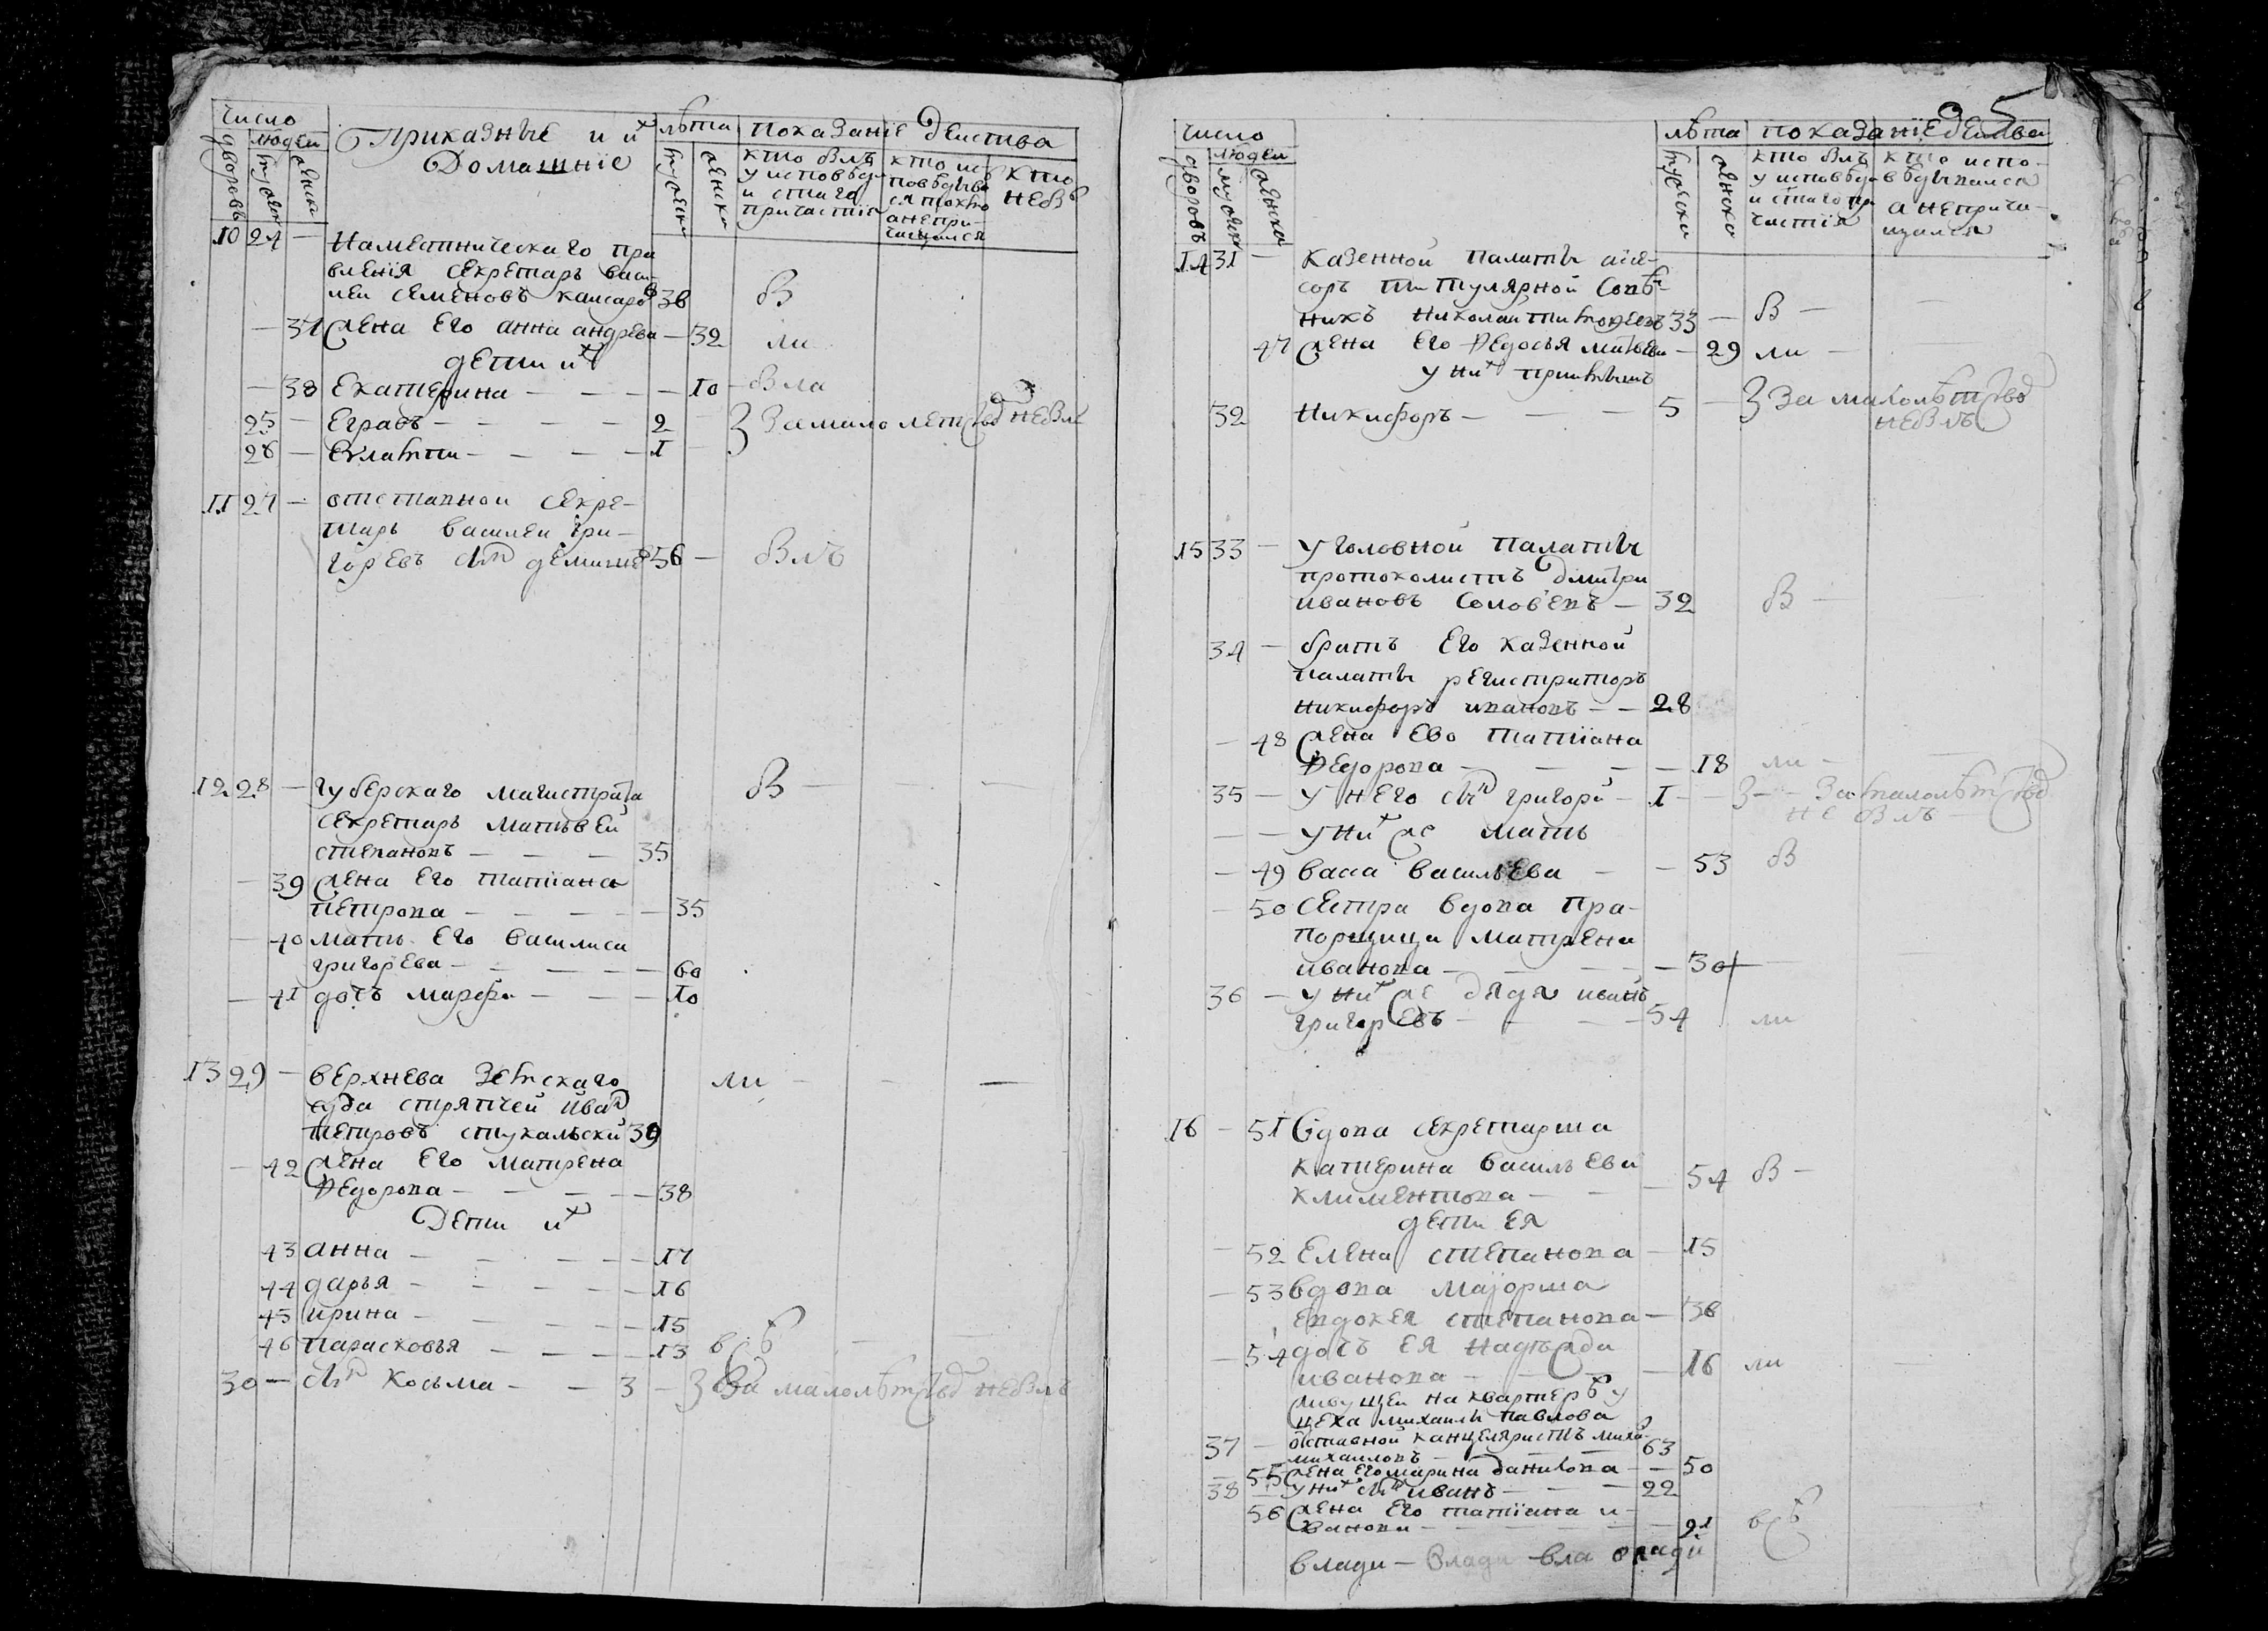 число
людей
дворовъ
мужеска
женска
Приказныe и ихъ
Домашніе
лѣта
мужеска
женска
показаніе действа
кто былъ
у исповѣди
и стаго
причастія
кто ис
повѣдыва
ся токмо
а непри-
чащался
кто
небы
10 24 — Наместническаго пра
вленія секретарь васи-
леи семеновъ 36 в
— 37 жена Его анна андреева — 32 ли
дети ихъ
— 38 Екатерина — — — 10 — Была
25 — Еграѳъ — — — — 2 З За мало летством небылъ
26 — — — — — 1
11 27 — отставной секре-
тарь василеи гри-
горевъ сынъ 56 — Былъ
12 28 — губерскаго магистрата в — — —
секретарь матьвей
степановъ — — — 35
— 39 жена Его татіана
петрова — — — — 35
— 40 мать Его василиса
григорева — — — — 60
— 41 дочь марфа — — — 10
13 29 — верхнева Земскаго ли — — —
суда стряпчей иванъ
петровъ стукальски 39
— 42 жена Его матрена
Ѳедорова — — — — 38
Дети ихъ
43 анна — — — — 17
44 дарья — — — — 16
45 ирина — — — — 15
46 парасковья — — — 13 всѣ — —
30 — сынъ Косьма — — 3 — З За малолѣтствомъ небылъ
5
число
людей
дворовъ
мужеска
женска
лѣта
мужеска
женска
показаніе действа
кто былъ
у исповѣди
и стаго при
частія
кто испо-
вѣдывался
а неприча-
щался
14 31 — казенной палаты асе-
соръ титулярной совѣт-
никъ николаи тимоѳеевъ 33 — в — —
47 жена Его Ѳедосья матвева — 29 ли —
у нихъ приимышъ
32 Никифоръ — — — 5 — З За малолѣтством
небылъ
15 33 — уголовной палаты
протоколистъ дмитри
ивановъ соловьевъ — 32 в —
34 — братъ Его казенной
палаты регистраторъ
никифоръ ивановъ — — 28
— 48 жена Ево татіана
Ѳедорова — — — — 18 ли — —
35 — у него сынъ григори — 1 — З — За малолѣтством
не былъ —
— — у них же мать
— 49 васа васильева — — 53 в
— 50 сестра вдова пра-
порщица матрена
иванова — — — — 30 — —
36 — у них же дядя иванъ
григоревъ — — — 54 ли
16 — 51 вдова секретарша
катерина васильева
климентова — — — 54 в —
дети ея
— 52 Елена степанова — 15
— 53 вдова маіорша
евдокея степанова — 38
— 54 дочь ея надежда
иванова — — — — 16 ли —
живущеи на квартерѣ у
цеха михаила павлова
37 — отставной канцеляристъ миха
михаиловъ — — — — 63
— 55 жена его марина данилова — — 50
38 — у нихъ сынъ иванъ — — — 22
56 жена Его татіана и-
ванова — — — — — 21 всѣ
влади — влади вла влади